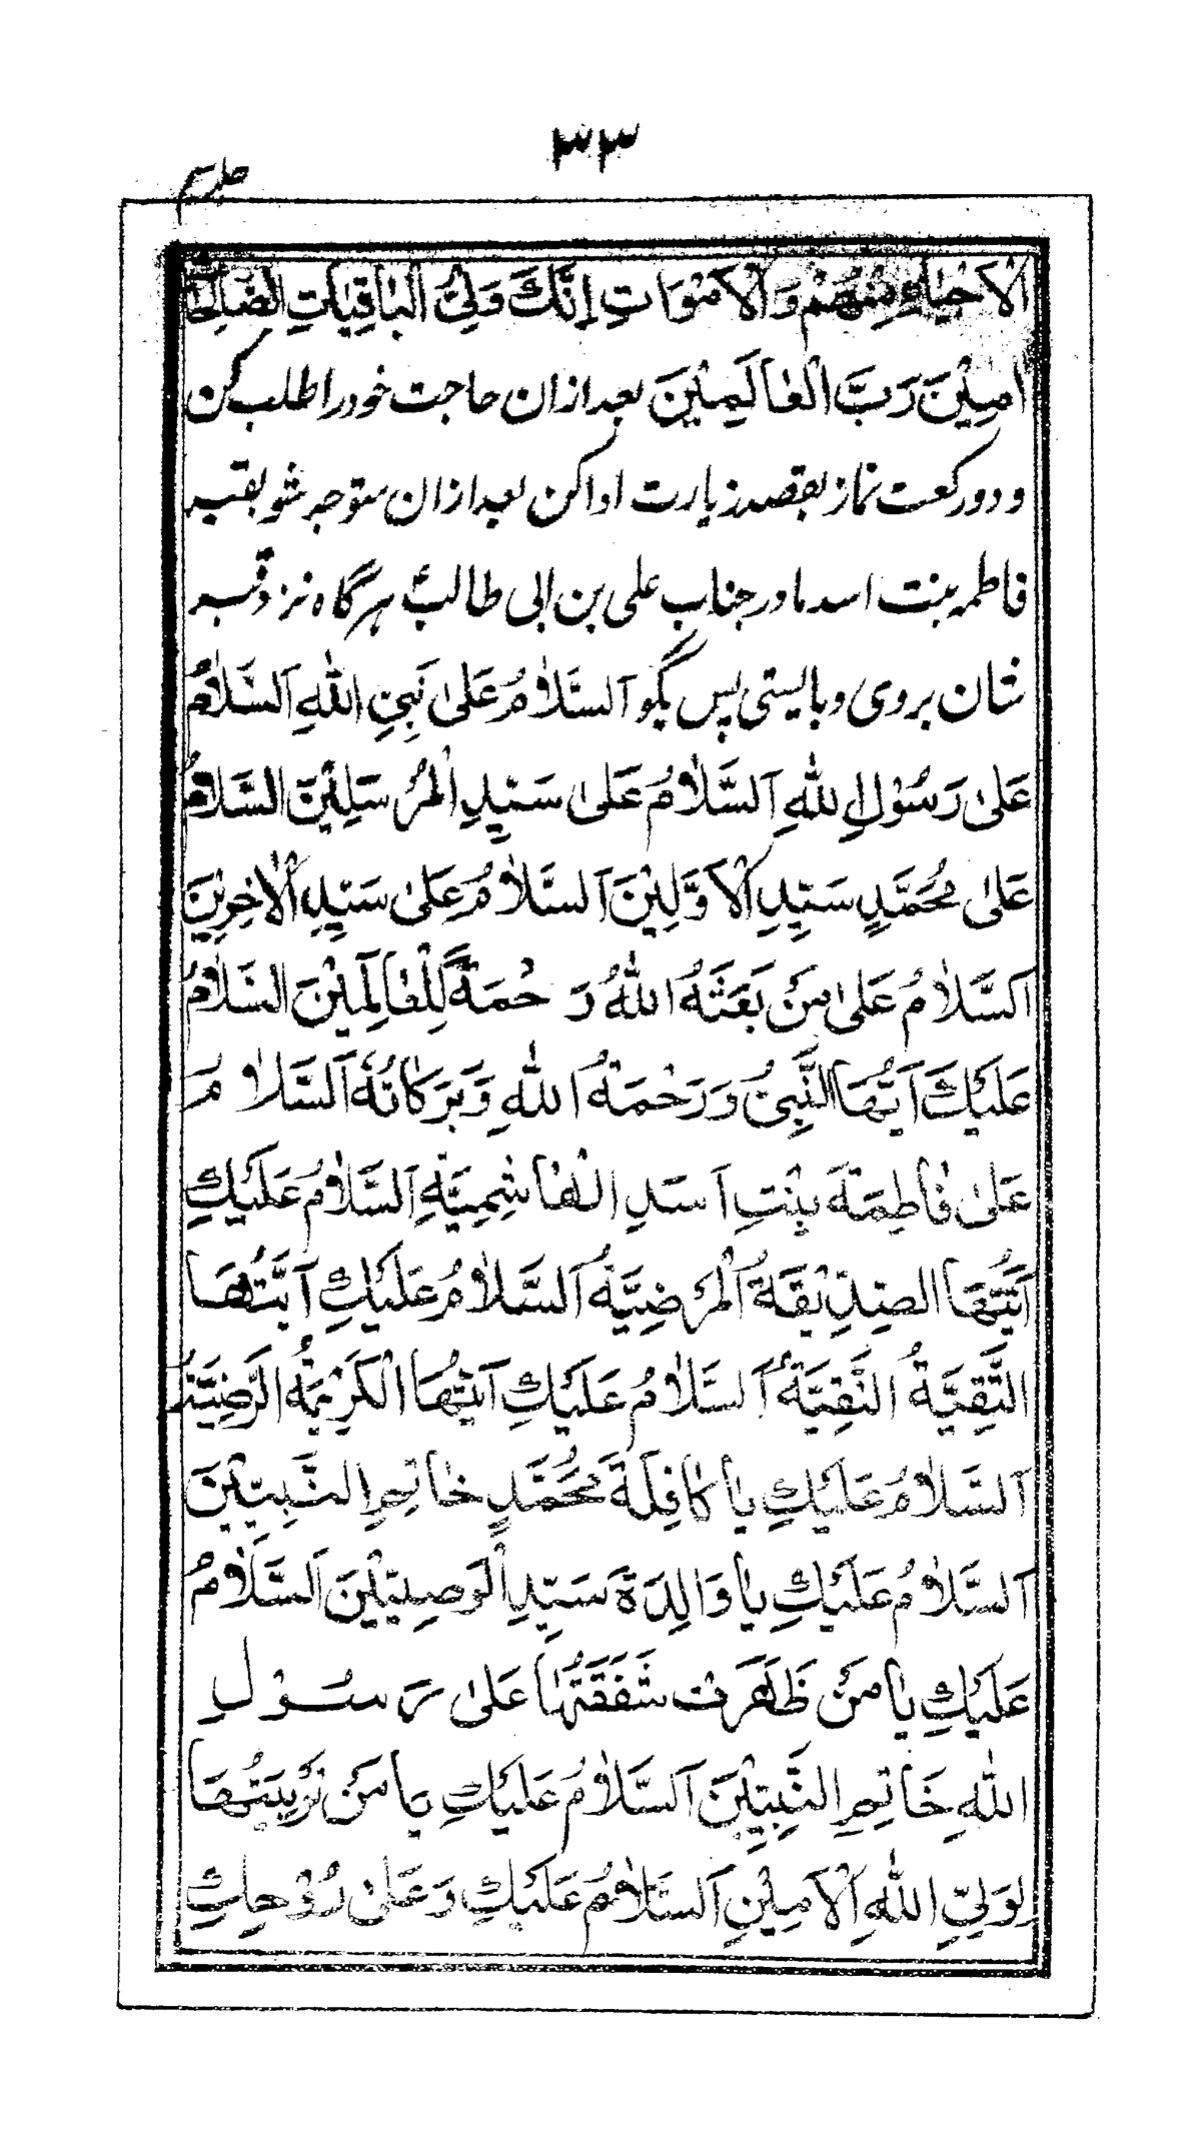 ٣٣
جلد سیم
الْاَحْیَاۤءِ مِنْهُمْ وَالْاَمْوَاتِ اِنَّكَ وَلِیُّ الْبَاقِیَاتِ الصَّالِحَاتِ
اٰمِیْنَ رَبَّ الْعَالَمِیْنَ بعد ازان حاجت خود را طلب کن
و دو رکعت نماز بقصد زیارت ادا کن بعد ازان متوجه شو بقبر
فاطمه بنت اسد مادر جناب علی بن ابی طالبؑ هر گاه نزد قبر
شان بروی و بایستی پس بگو اَلسَّلَامُ عَلٰی نَبِیِّ اللّٰهِ اَلسَّلَامُ
عَلٰی رَسُوْلِ اللّٰهِ اَلسَّلَامُ عَلٰی سَیِّدِ الْمُرْسَلِیْنَ السَّلَامُ
عَلٰی مُحَمَّدٍ سَیِّدِ الْاَوَّلِیْنَ اَلسَّلَامُ عَلٰی سَیِّدِ الْاٰخِرِیْنَ
اَلسَّلَامُ عَلٰی مَنْ بَعَثَهُ اللّٰهُ رَحْمَةً لِلْعَالَمِیْنَ السَّلَامُ
عَلَیْكَ اَیُّهَا النَّبِیُّ وَرَحْمَةُ اللّٰهِ وَبَرَكَاتُهٗ اَلسَّلَامُ
عَلٰی فَاطِمَةَ بِنْتِ اَسَدِ الْهَاشِمِیَّةِ اَلسَّلَامُ عَلَیْكِ
اَیَّتُهَا الصِّدِّیْقَةُ الْمَرْضِیَّةُ اَلسَّلَامُ عَلَیْكِ اَیَّتُهَا
التَّقِیَّةُ النَّقِیَّةُ اَلسَّلَامُ عَلَیْكِ اَیَّتُهَا الْكَرِیْمَةُ الرَّضِیَّةُ
اَلسَّلَامُ عَلَیْكِ یَا كَافِلَةَ مُحَمَّدٍ خَاتِمِ النَّبِیِّیْنَ
اَلسَّلَامُ عَلَیْكِ یَا وَالِدَةَ سَیِّدِ الْوَصِیِّیْنَ اَلسَّلَامُ
عَلَیْكِ یَا مَنْ ظَهَرَتْ شَفَقَتُهَا عَلٰی رَسُوْلِ
اللّٰهِ خَاتِمِ النَّبِیِّیْنَ اَلسَّلَامُ عَلَیْكِ یَا مَنْ تَرْبِیَتُهَا
لِوَلِیِّ اللّٰهِ الْاَمِیْنِ اَلسَّلَامُ عَلَیْكِ وَعَلٰی رُوْحِكِ